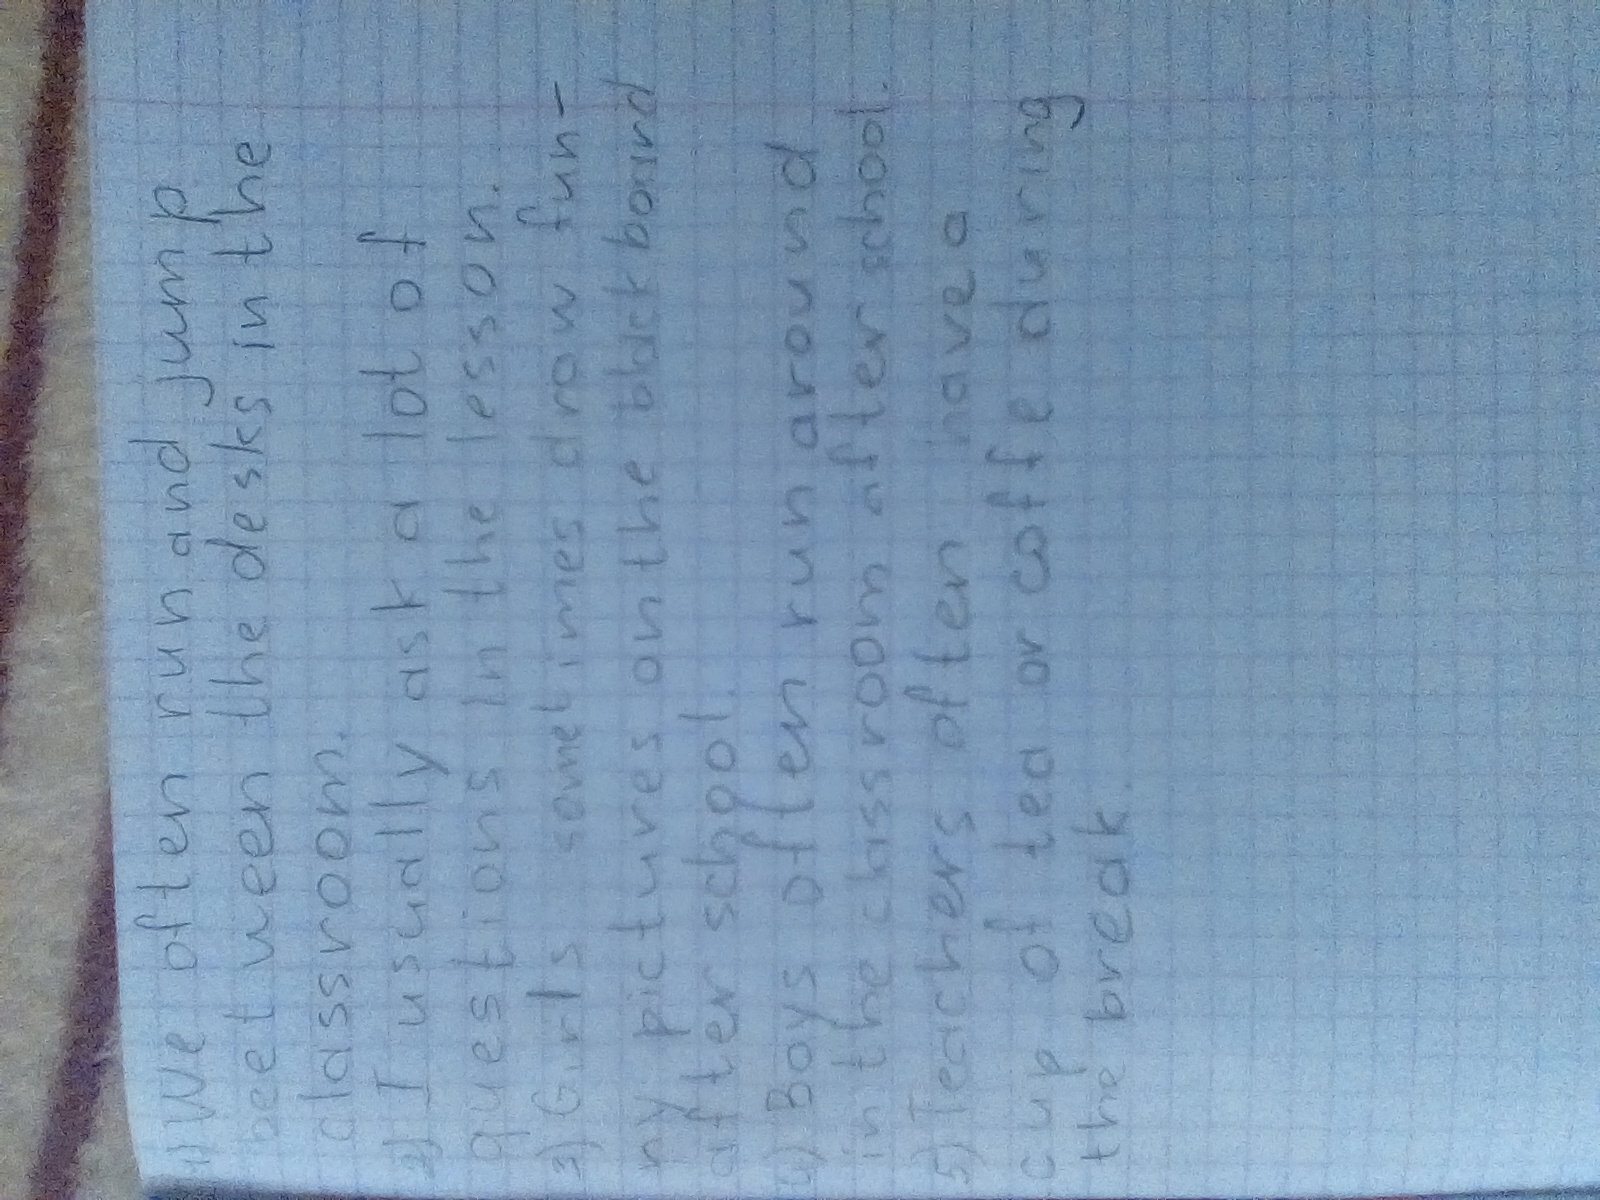 1) We often run and jump
between the desks in the
classroom.
2) I usually ask a lot of
questions in the lesson.
3) Girls sometimes draw fun-
ny pictures on the blackboard
after school.
4) Boys often run around
in the classroom after school.
5) Teachers often have a
cup of tea or coffe during
the break.